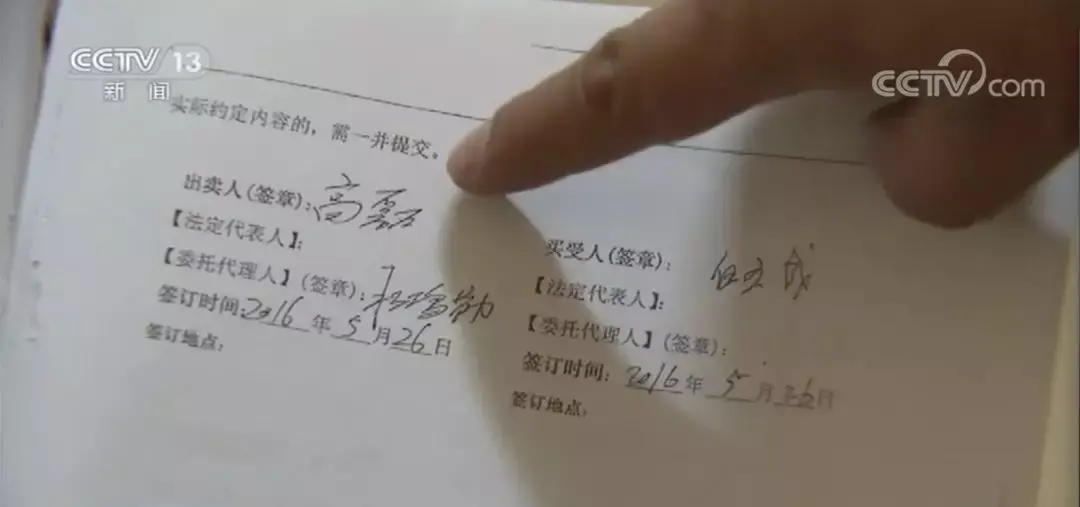 CCTV 13
新闻
CCTV.com
实际约定内容的，需一并提交。
出卖人(签章)：高磊
【法定代表人】：
【委托代理人】(签章)：
签订时间：2016年5月26日
签订地点：
买受人(签章)：
【法定代表人】：
【委托代理人】(签章)：
签订时间：2016年5月26日
签订地点：